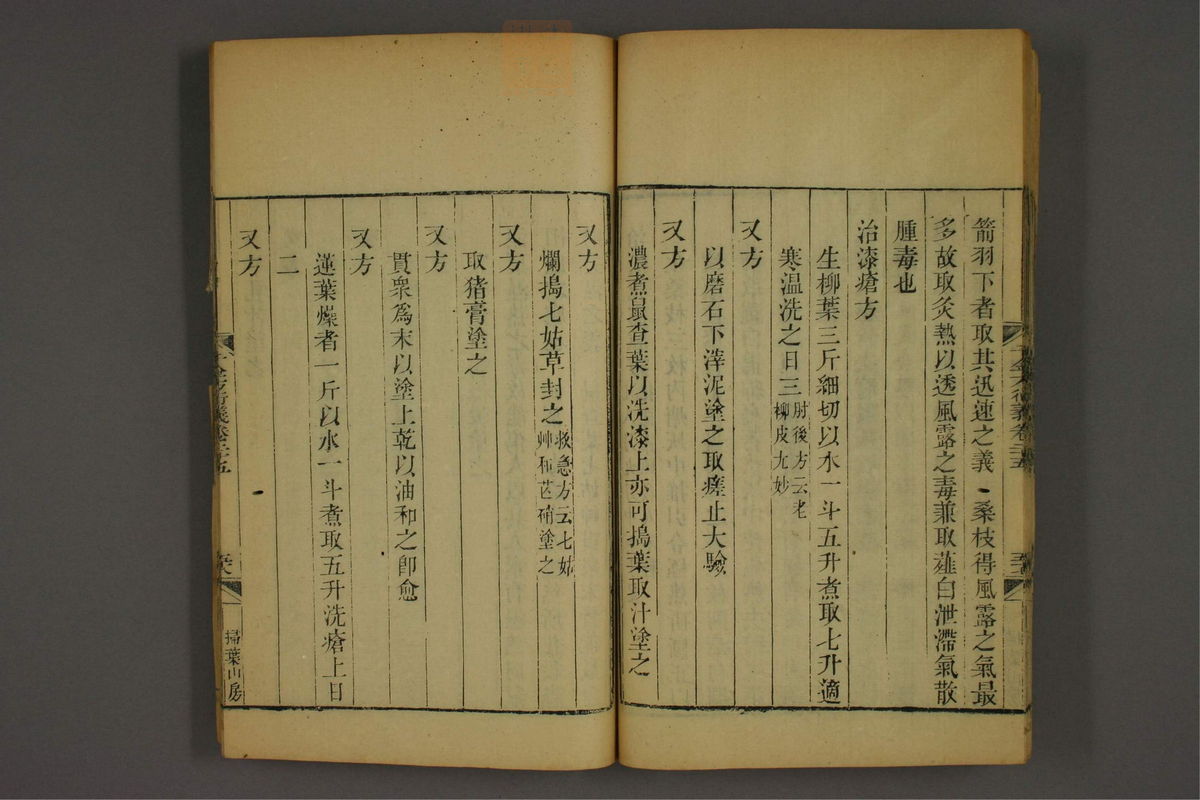 箭羽下者取其迅速之義桑枝得風露之氣最
多故取灸熱以透風露之毒兼取薤白泄滯氣散
腫毒也
治漆瘡方
生柳葉三斤細切以水一斗五升煮取七升適
寒温洗之日三肘後方云老柳皮尤妙
又方
以磨石下滓泥塗之取瘥止大驗
又方
濃煮鼠查葉以洗漆上亦可搗葉取汁塗之
又方
爛搗七姑草封之救急方云七姑艸和芒硝塗之
又方
取猪膏塗之
又方
貫衆爲末以塗上乾以油和之卽愈
又方
蓮葉燥者一斤以水一斗煮取五升洗瘡上日
二
又方
千金方衍義卷二十五
掃葉山房